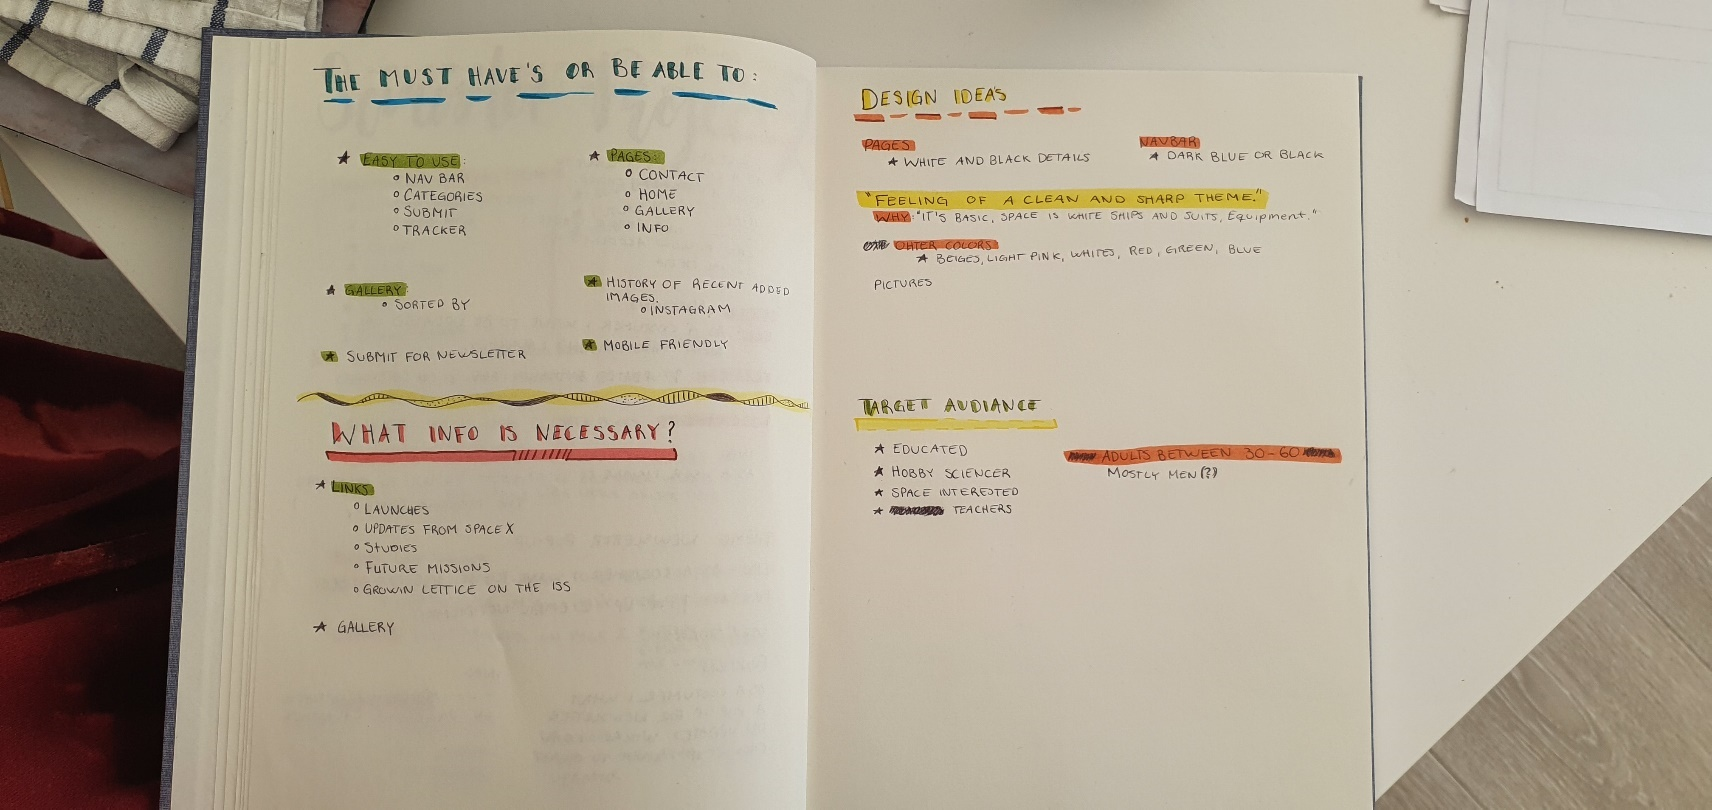 THE MUST HAVE'S OR BE ABLE TO:
★ EASY TO USE:
◦ NAV BAR
◦ CATEGORIES
◦ SUBMIT
◦ TRACKER
★ PAGES:
◦ CONTACT
◦ HOME
◦ GALLERY
◦ INFO
★ GALLERY:
◦ SORTED BY
★ HISTORY OF RECENT ADDED
IMAGES.
◦ INSTAGRAM
★ SUBMIT FOR NEWSLETTER
★ MOBILE FRIENDLY
WHAT INFO IS NECESSARY?
★ LINKS
◦ LAUNCHES
◦ UPDATES FROM SPACE X
◦ STUDIES
◦ FUTURE MISSIONS
◦ GROWIN LETTICE ON THE ISS
★ GALLERY
DESIGN IDEAS
PAGES
★ WHITE AND BLACK DETAILS
NAVBAR
★ DARK BLUE OR BLACK
"FEELING OF A CLEAN AND SHARP THEME."
WHY: "IT'S BASIC, SPACE IS WHITE SHIPS AND SUITS, Equipment."
OHTER COLORS
★ BEIGES, LIGHT PINK, WHITES, RED, GREEN, BLUE
PICTURES
TARGET AUDIANCE
★ EDUCATED
★ HOBBY SCIENCER
★ SPACE INTERESTED
★ TEACHERS
ADULTS BETWEEN 30-60
MOSTLY MEN (?)